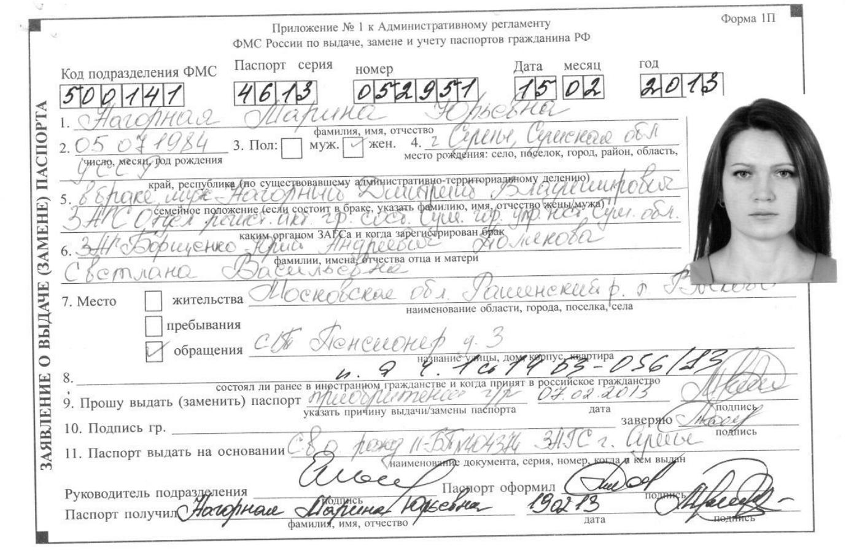 Приложение № 1 к Административному регламенту
Форма 1П
ФМС России по выдаче, замене и учету паспортов гражданина РФ
ЗАЯВЛЕНИЕ О ВЫДАЧЕ (ЗАМЕНЕ) ПАСПОРТА
Код подразделения ФМС Паспорт серия номер Дата месяц год
500141 4613 052951 15 02 2013
1. Нагорная Марина Юрьевна
фамилия, имя, отчество
2. 05 07 1984 3. Пол: муж. ✓ жен. 4. г Сумы, Сумская обл
число, месяц, год рождения место рождения: село, поселок, город, район, область,
УССР
край, республика (по существовавшему административно-территориальному делению)
5. в браке, муж Нагорный Владимирович
семейное положение (если состоит в браке, указать фамилию, имя, отчество жены/мужа)
ЗАГС Сум. обл.
каким органом ЗАГСа и когда зарегистрирован брак
6. Юрий Андреевич Полякова
Светлана Васильевна
фамилии, имена, отчества отца и матери
7. Место жительства Московская обл. р.
наименование области, города, поселка, села
пребывания
✓ обращения Пенсионер д. 3
название улицы, дом, корпус, квартира
8. п. а ч. 1 ст 14 БЗ-056/13
состоял ли ранее в иностранном гражданстве и когда принят в российское гражданство
9. Прошу выдать (заменить) паспорт 07.02.2013
указать причину выдачи/замены паспорта дата подпись
10. Подпись гр. заверяю
подпись
11. Паспорт выдать на основании ЗАГС г. Сумы
наименование документа, серия, номер, когда и кем выдан
Руководитель подразделения Паспорт оформил
подпись подпись
Паспорт получил Нагорная Марина Юрьевна 190213
фамилия, имя, отчество дата подпись